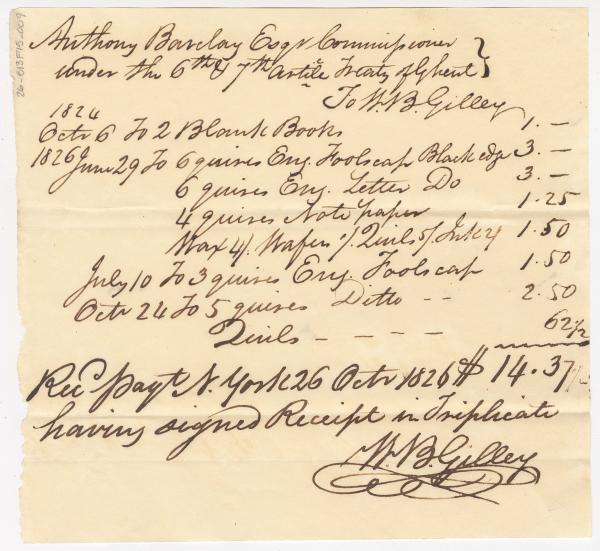 26-613F15-009
Anthony Barclay Esqr Commissioner
under the 6th & 7th article Treaty of Ghent }
To W. B. Gilley
1824
Octr 6 To 2 Blank Books 1. —
1826 June 29 To 6 quires Eng. Foolscap Black edge 3. —
6 quires Eng. Letter Do 3. —
4 quires Note paper 1.25
Wax 4/. Wafers 1/. Quils 5/. Ink 2/ 1.50
July 10 To 3 quires Eng. Foolscap 1.50
Octr 24 To 5 quires Ditto - - 2.50
Quils - - - - 62 1/2
Recd payt N. York 26 Octr 1826 $ 14.37 1/2
having signed Receipt in Triplicate
W. B. Gilley